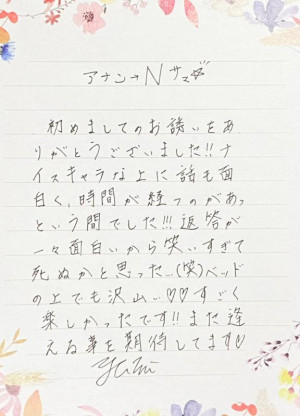 アナシンN サマ☆
初めましてのお誘いをあ
りがとうございました!!ナ
イスキャラな上に話も面
白く、時間が経つのがあっ
という間でした!!!返答が
一々面白いから笑いすぎて
死ぬかと思った…(笑)ベッド
の上でも沢山…♡♡すごく
楽しかったです!!また逢
える事を期待してます♡